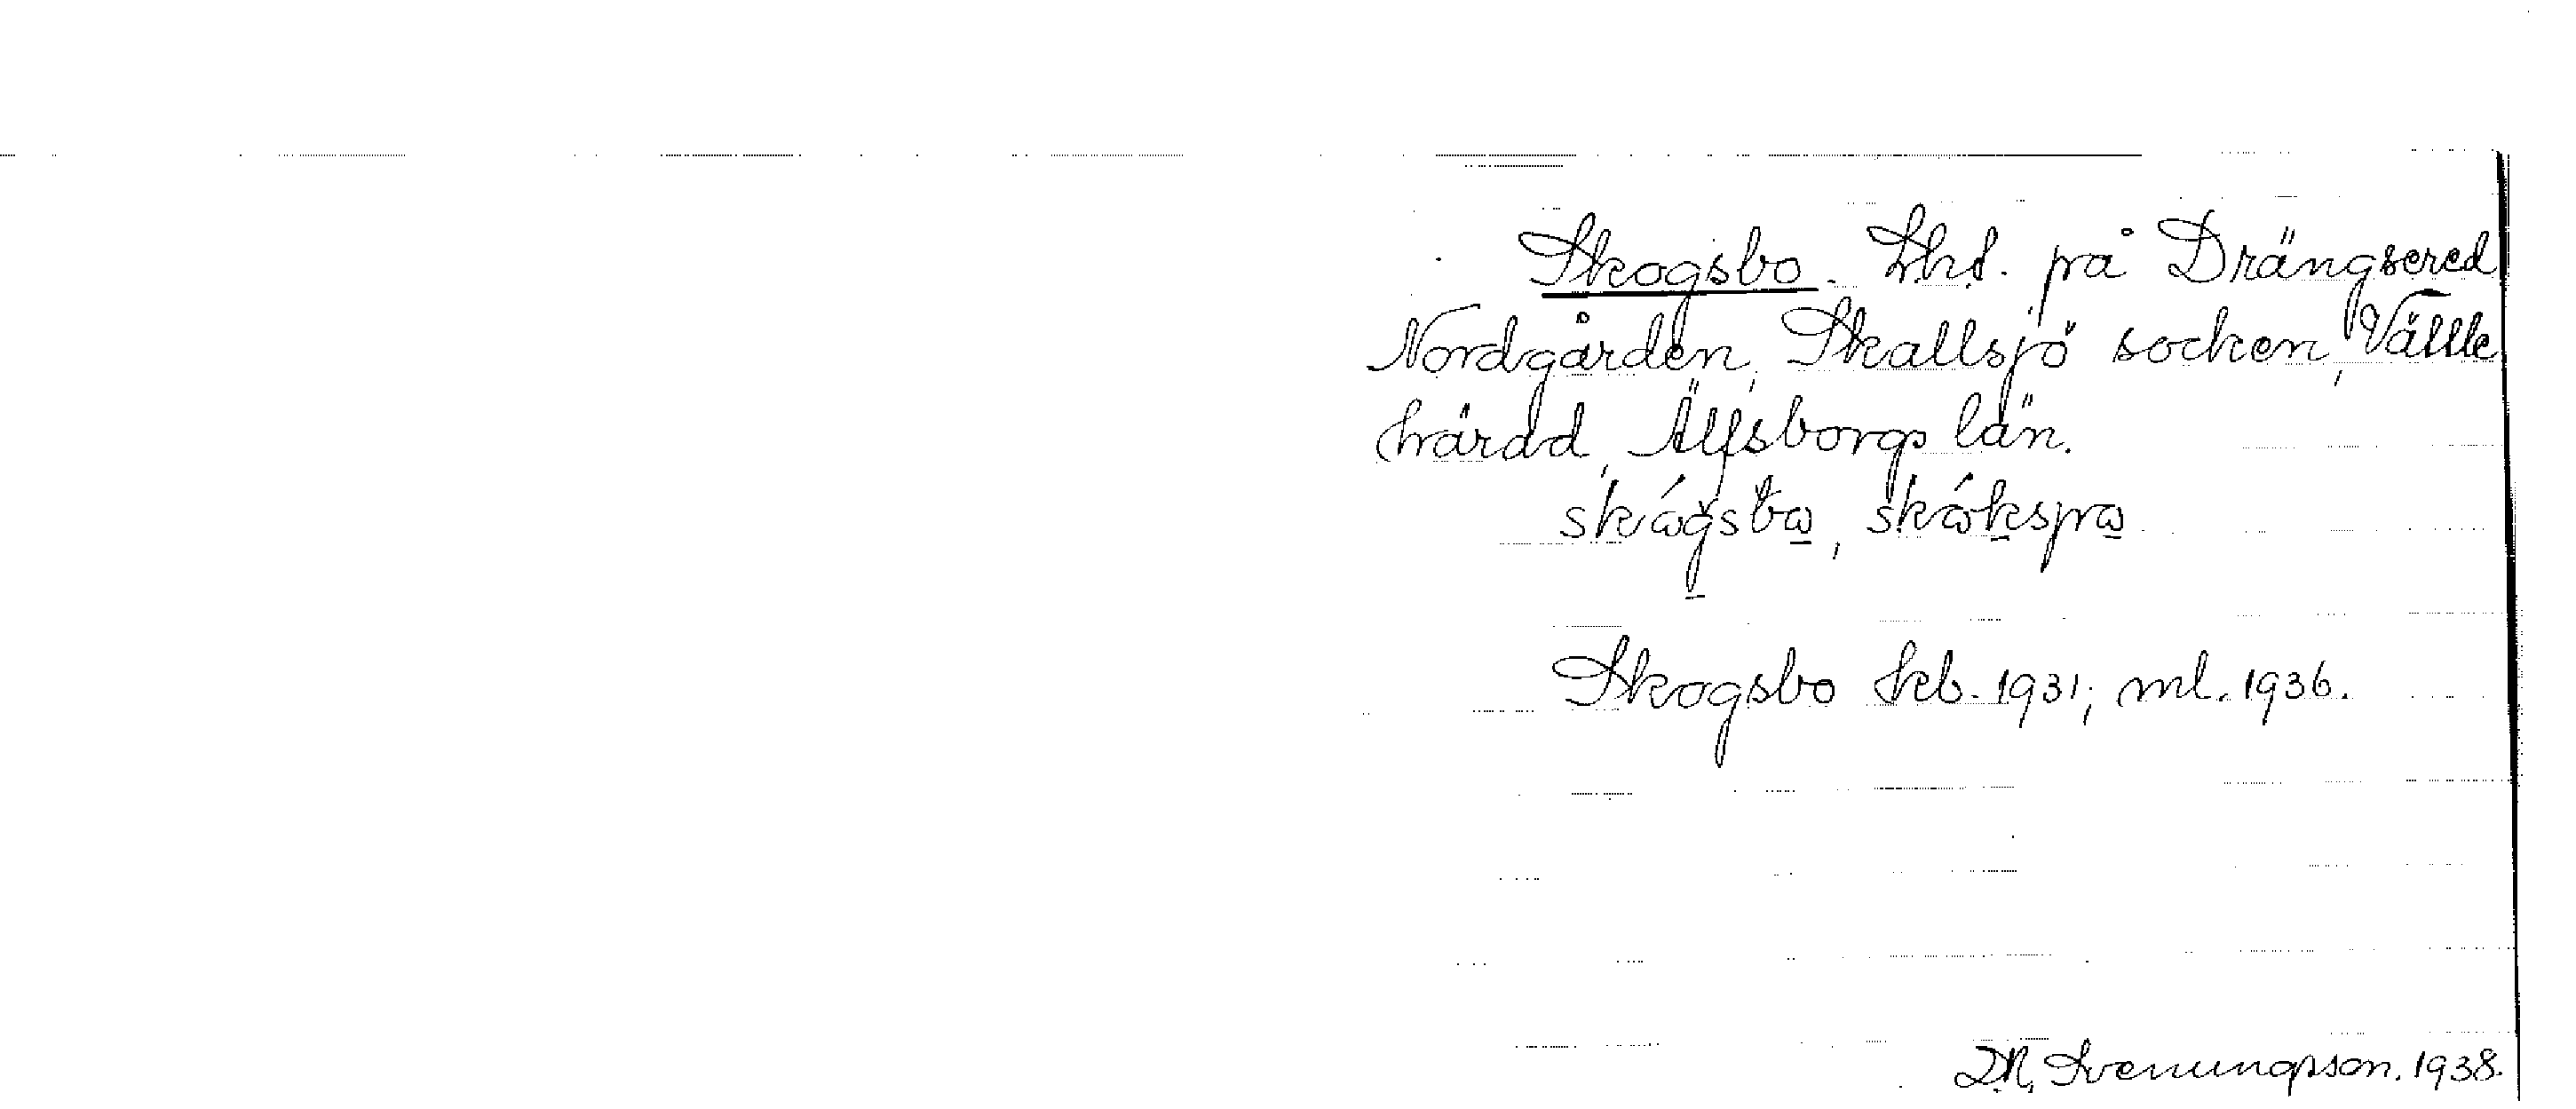 Skogsbo. Lht. på Drängsered
Nordgården, Skallsjö socken, Vättle
härad, Älfsborgs län.
skógsba, skókspa
Skogsbo kb. 1931; ml. 1936.
D.N. Svenungsson. 1938.